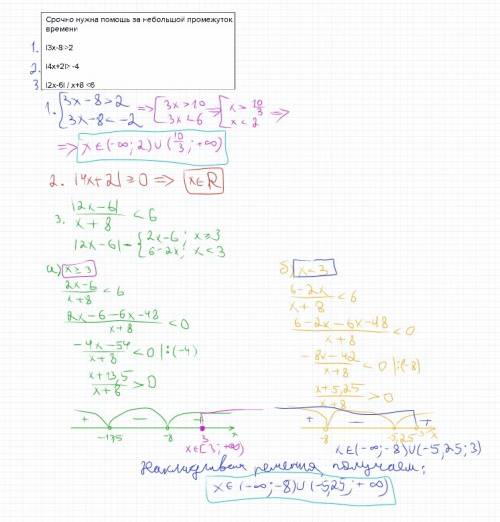 Срочно нужна помощь за небольшой промежуток
времени
1. I3x-8>2
2. I4x+2I> -4
3 I2x-6I / x+8 <6
1. [3x-8>2 3x-8<-2 => [3x>10 3x<6 => [x>10/3 x<2 =>
=> x∈(-∞; 2)∪(10/3; +∞)
2. |4x+2|≥0 => x∈R
3. |2x-6|/x+8 < 6
|2x-6|={2x-6; x≥3 6-2x; x<3
а) x≥3
2x-6/x+8 < 6
2x-6-6x-48/x+8 < 0
-4x-54/x+8 < 0 |:(-4)
x+13,5/x+8 > 0
+ - +
-13,5 -8 3 x
x∈[3; +∞)
б) x<3
6-2x/x+8 < 6
6-2x-6x-48/x+8 < 0
-8x-42/x+8 < 0 |:(-8)
x+5,25/x+8 > 0
+ - +
-8 -5,25 3 x
x∈(-∞; -8)∪(-5,25; 3)
решения, получаем:
x∈(-∞; -8)∪(-5,25; +∞)